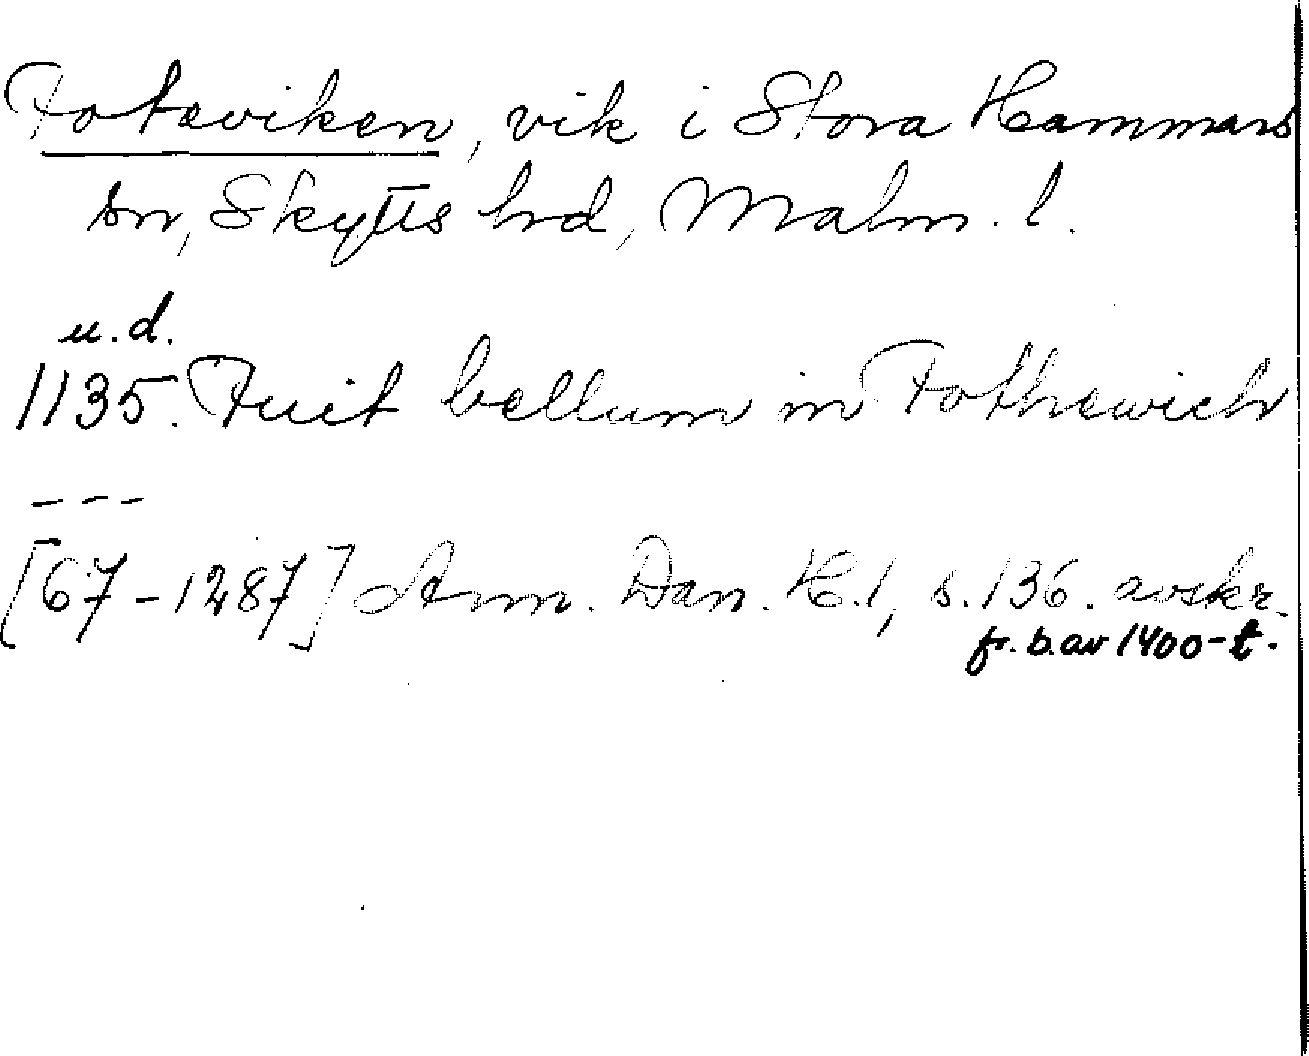 Foteviken, vik i Stora Hammars
sn, Skytts hrd, Malm. l.
u.d.
1135. Fuit bellum in Fothewich
---
[67-1287] Ann. Dan. H.1, s.136. avskr.
fr. b. av 1400-t.